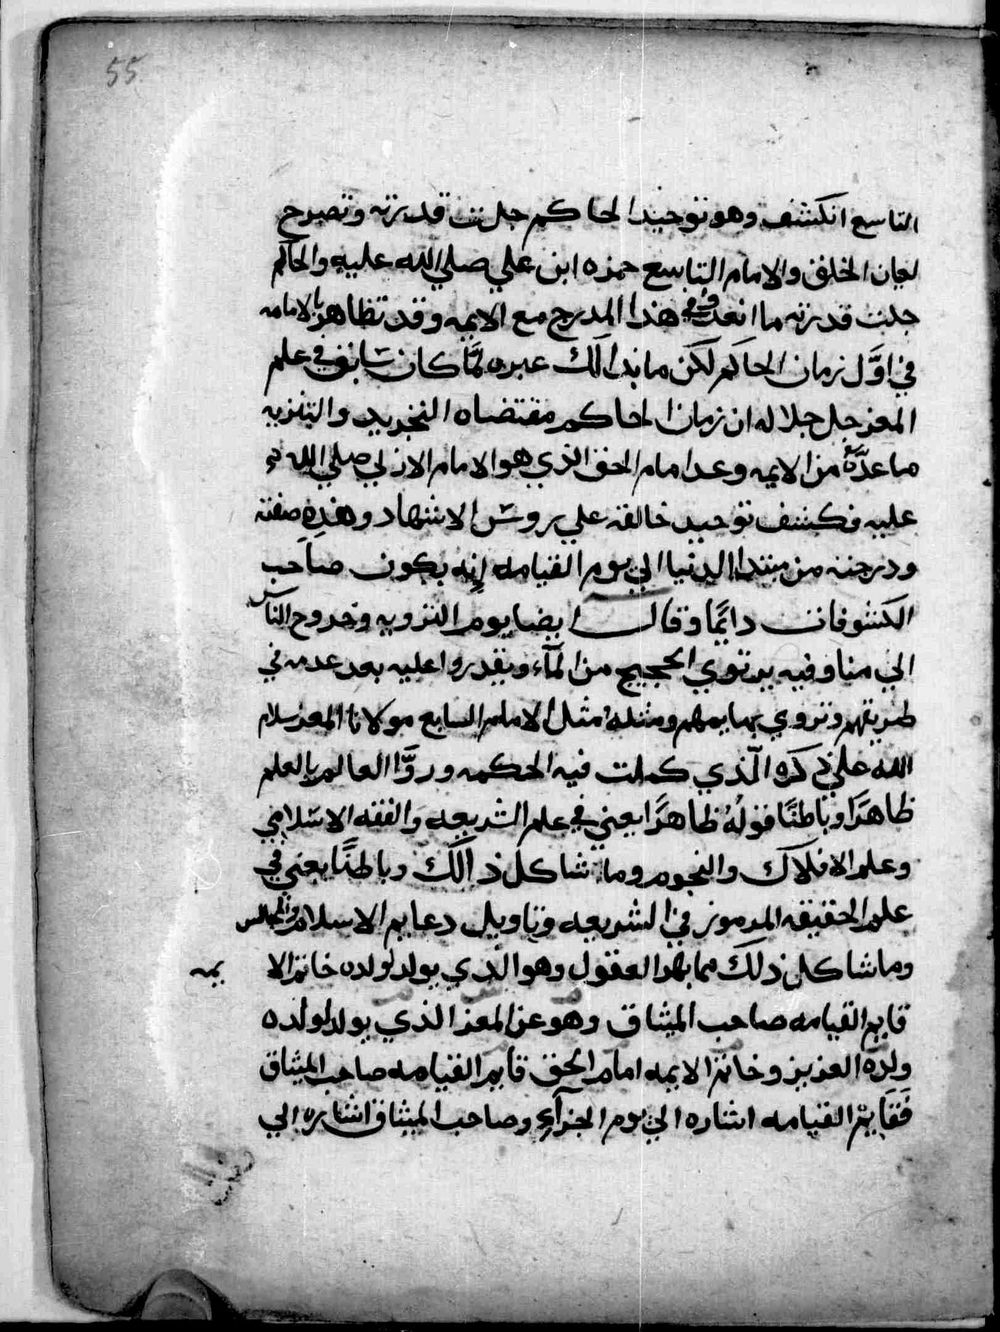 55
التاسع انكشف وهو توحيد الحاكم جلت قدرته وتصرح
لعان الخلق والامام التاسع حمزه ابن علي صلي الله عليه والحاكم
جلت قدرته ما انعد في هذا المدرج مع الايمه وقد تظاهر بالامامه
في اوَّل زمان الحاكم لكن ما بدا لك عبره لمَّا كان سابق في علم
المعز جل جلاله ان زمان الحاكم مقتضاه التجريد والتنزيه
ما عدَّه مع من الايمه وعد امام الحق الذي هو الامام الازلي صلي الله
عليه فكشف توحيد خالقه علي روس الاشهاد وهذه صفته
ودرجته من مبتدا الدنيا الي يوم القيامه انه يكون صاحب
الكشوفات دائمًا وقال ايضا يوم التروية وخروج الناس
الي منا وفيه يرتوي الحجيج من المآء ويقدروا عليه بعد عدمه في
طريقهم وتروي بهايمهم ومثله مثل الامام السابع مولانا المعز سلام
الله علي ذكره الَّذي كملت فيه الحكمه وروَّا العالم بالعلم
ظاهرًا وباطنًا فقولُهُ ظاهرًا يعني في علم الشريعه والفقه الاسلامي
وعلم الافلاك والنجوم وما شاكل ذالك وباطنًا يعني في
علم الحقيقه المرموز في الشريعه وتاويل دعايم الاسلام والمجالس
وما شاكل ذلك مما بهر العقول وهو الذي يولد لولده خاتم الا يمه
قايم القيامه صاحب الميثاق وهو عن المعز الذي يولد لولده
ولده العزيز وخاتم الايمه امام الحق قايم القيامه صاحب الميثاق
فَقَايم القيامه اشاره الي يوم الجزآء وصاحب الميثاق اشاره الي